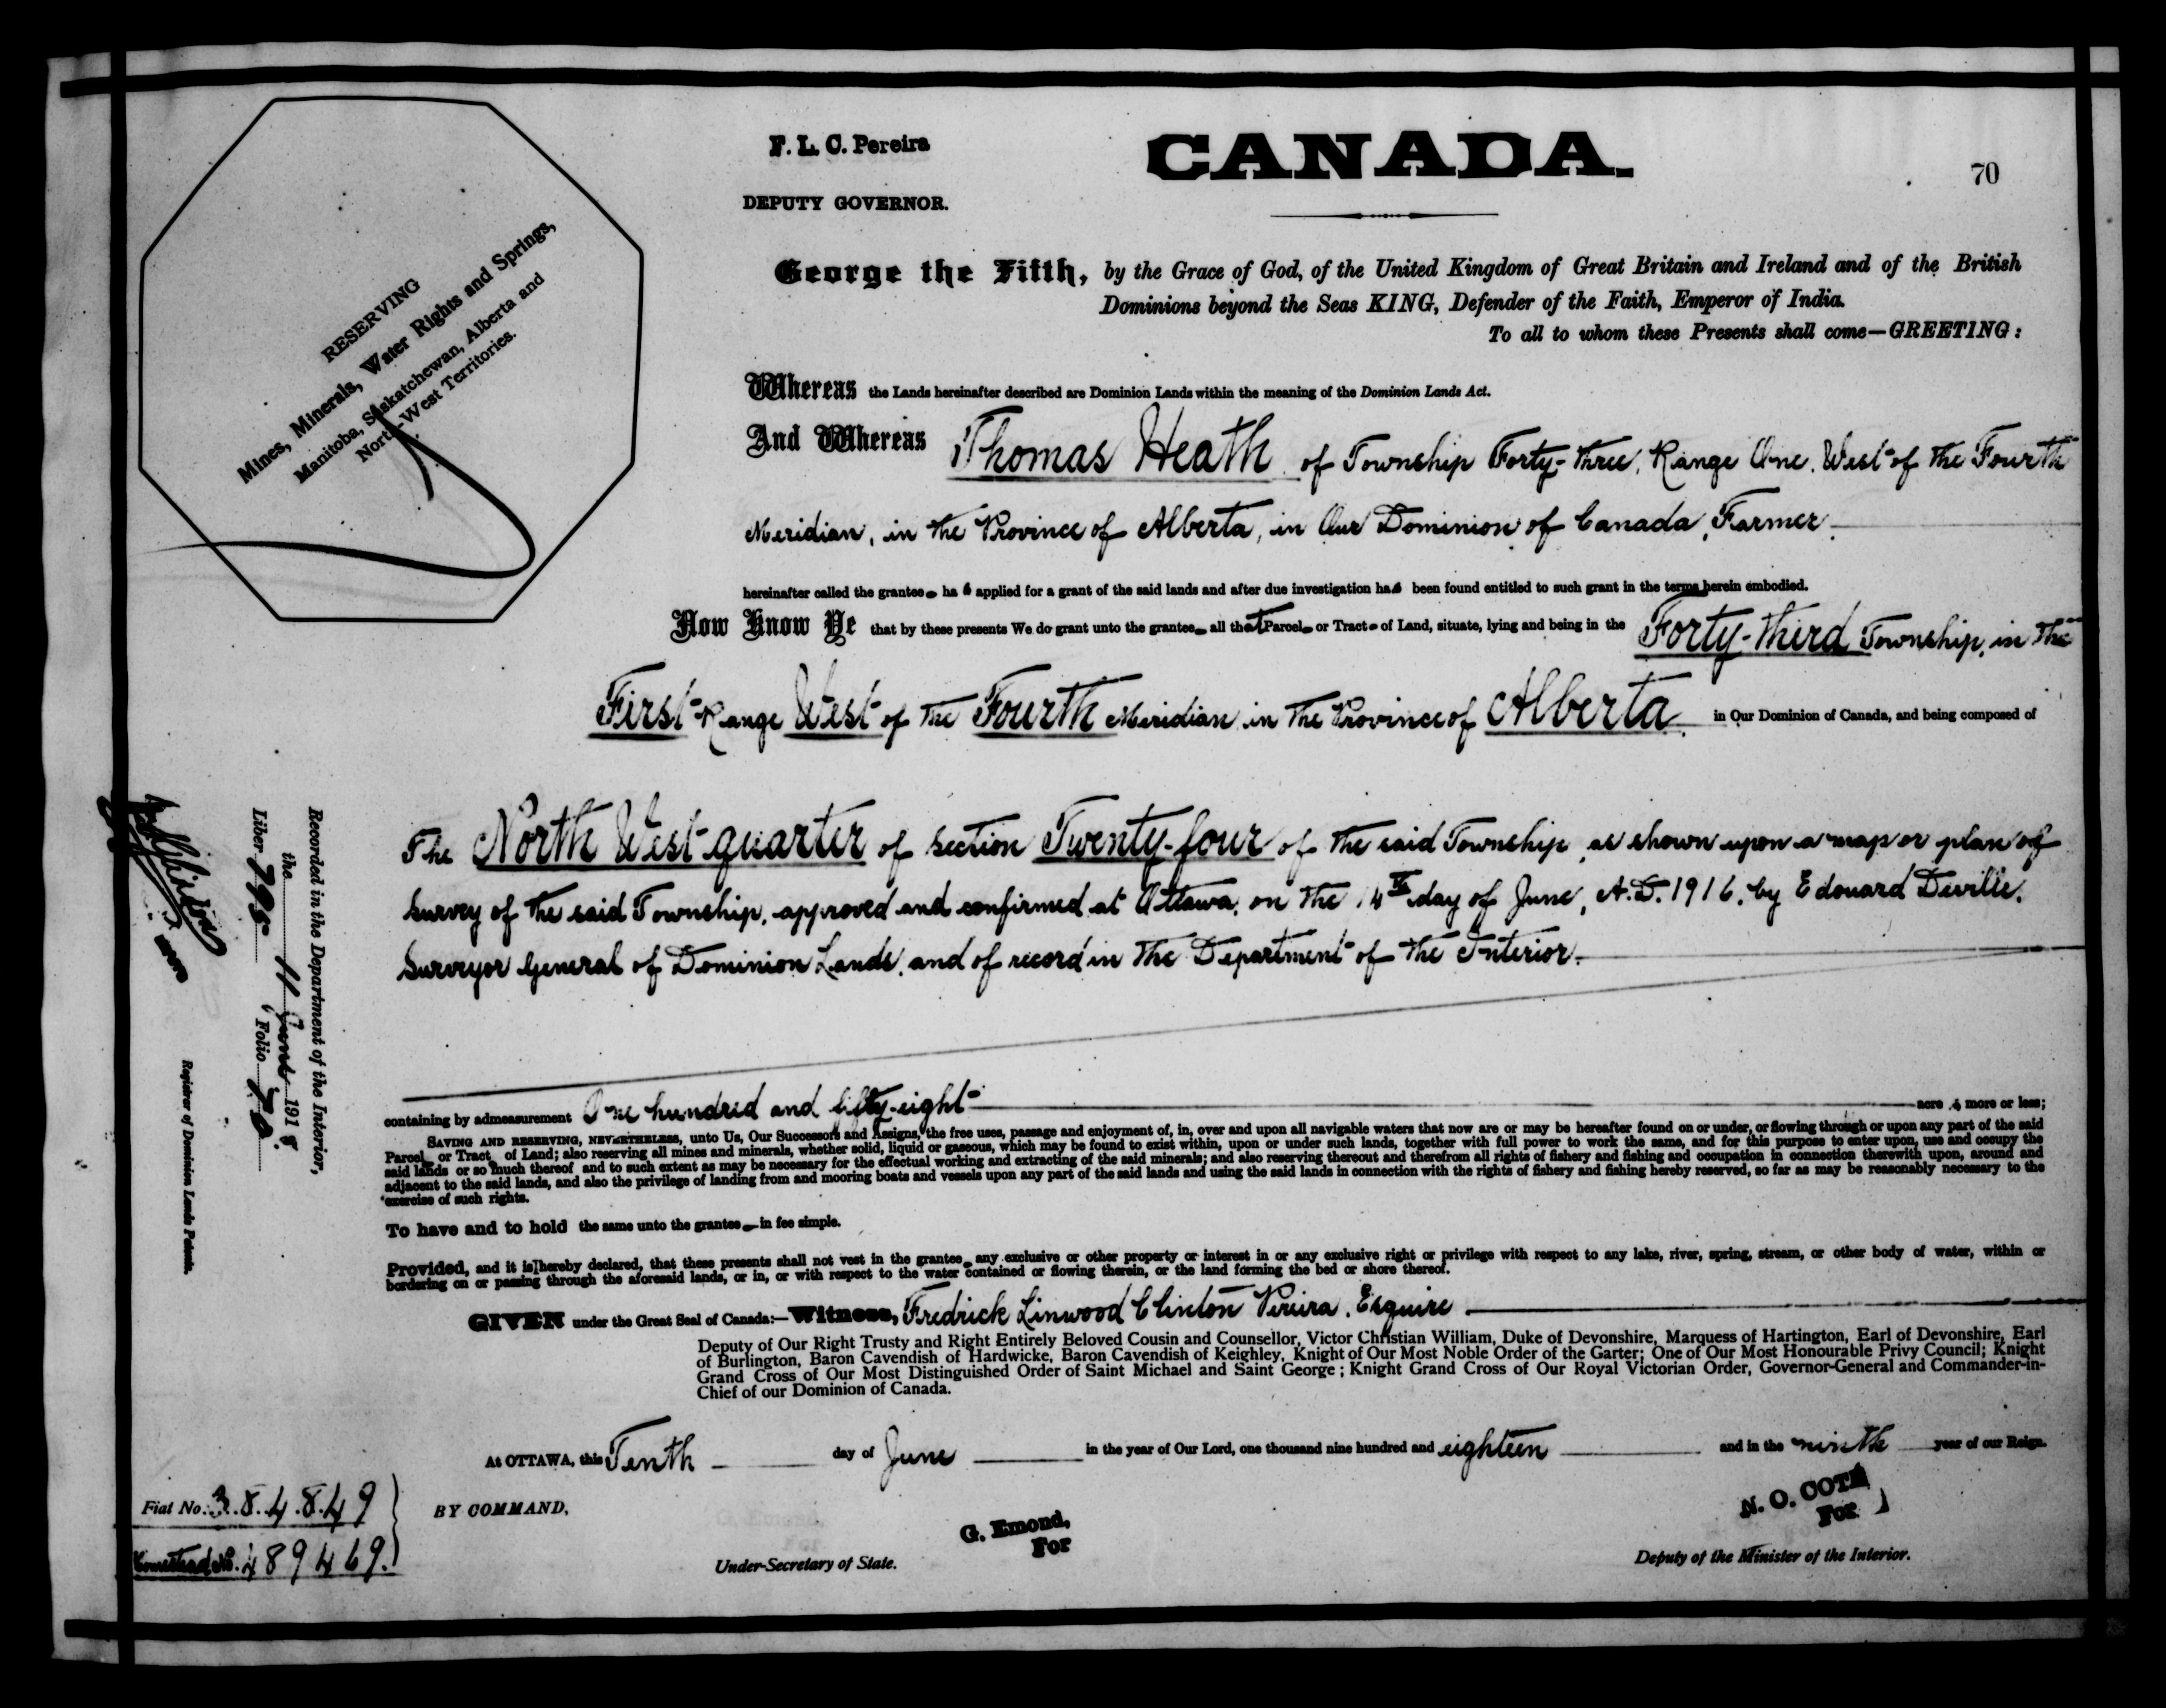 F. L. C. Pereira
DEPUTY GOVERNOR.
CANADA.
70
RESERVING
Mines, Minerals, Water Rights and Springs,
Manitoba, Saskatchewan, Alberta and
North-West Territories.
George the Fifth, by the Grace of God, of the United Kingdom of Great Britain and Ireland and of the British
Dominions beyond the Seas KING, Defender of the Faith, Emperor of India.
To all to whom these Presents shall come—GREETING:
Whereas the Lands hereinafter described are Dominion Lands within the meaning of the Dominion Lands Act.
And Whereas Thomas Heath of Township Forty-three, Range One, West of the Fourth
Meridian, in the Province of Alberta, in Our Dominion of Canada, Farmer.
hereinafter called the grantee has applied for a grant of the said lands and after due investigation has been found entitled to such grant in the terms herein embodied.
Now Know Ye that by these presents We do grant unto the grantee all that Parcel or Tract of Land, situate, lying and being in the Forty-third Township, in the
First Range West of the Fourth Meridian, in the Province of Alberta in Our Dominion of Canada, and being composed of
The North West quarter of section Twenty-four of the said Township, as shown upon a map or plan of
survey of the said Township, approved and confirmed at Ottawa, on the 14th day of June, A.D. 1916, by Edouard Deville,
Surveyor General of Dominion Lands, and of record in the Department of the Interior.
containing by admeasurement One hundred and fifty-eight acres more or less;
SAVING AND RESERVING, NEVERTHELESS, unto Us, Our Successors and Assigns, the free uses, passage and enjoyment of, in, over and upon all navigable waters that now are or may be hereafter found on or under, or flowing through or upon any part of the said
Parcel or Tract of Land; also reserving all mines and minerals, whether solid, liquid or gaseous, which may be found to exist within, upon or under such lands, together with full power to work the same, and for this purpose to enter upon, use and occupy the
said lands or so much thereof and to such extent as may be necessary for the effectual working and extracting of the said minerals; and also reserving thereout and therefrom all rights of fishery and fishing and occupation in connection therewith upon, around and
adjacent to the said lands, and also the privilege of landing from and mooring boats and vessels upon any part of the said lands and using the said lands in connection with the rights of fishery and fishing hereby reserved, so far as may be reasonably necessary to the
exercise of such rights.
To have and to hold the same unto the grantee in fee simple.
Provided, and it is hereby declared, that these presents shall not vest in the grantee any exclusive or other property or interest in or any exclusive right or privilege with respect to any lake, river, spring, stream, or other body of water, within or
bordering on or passing through the aforesaid lands, or in, or with respect to the water contained or flowing therein, or the land forming the bed or shore thereof.
GIVEN under the Great Seal of Canada:—Witness, Fredrick Linwood Clinton Pereira, Esquire
Deputy of Our Right Trusty and Right Entirely Beloved Cousin and Counsellor, Victor Christian William, Duke of Devonshire, Marquess of Hartington, Earl of Devonshire, Earl
of Burlington, Baron Cavendish of Hardwicke, Baron Cavendish of Keighley, Knight of Our Most Noble Order of the Garter; One of Our Most Honourable Privy Council; Knight
Grand Cross of Our Most Distinguished Order of Saint Michael and Saint George; Knight Grand Cross of Our Royal Victorian Order, Governor-General and Commander-in-
Chief of our Dominion of Canada.
At OTTAWA, this Tenth day of June in the year of Our Lord, one thousand nine hundred and eighteen and in the ninth year of our Reign.
BY COMMAND,
G. Emond,
For
Under-Secretary of State.
N. O. COTÉ
For
Deputy of the Minister of the Interior.
Fiat No. 384849
Homestead No. 489469.
Recorded in the Department of the Interior,
the 11 June 1918.
Liber 795 Folio 70.
Registrar of Dominion Lands Patents.